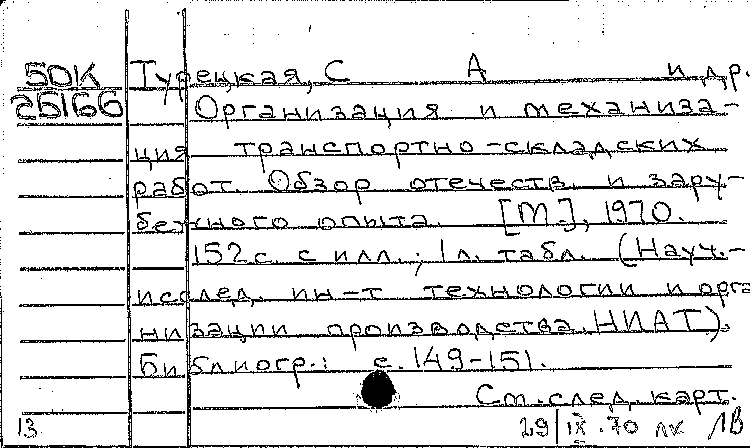 50К Турецкая, С А и др.
25166 Организация и механиза-
ция транспортно-складских
работ. Обзор отечеств. и зару-
бежного опыта. [М.], 1970.
152 с. с илл.; 1 л. табл. (Науч.-
исслед. ин-т технологии и орга
низации производства. НИАТ).
Библиогр.: с. 149-151.
См. след. карт.
13 29 IX .70 лк ЛВ